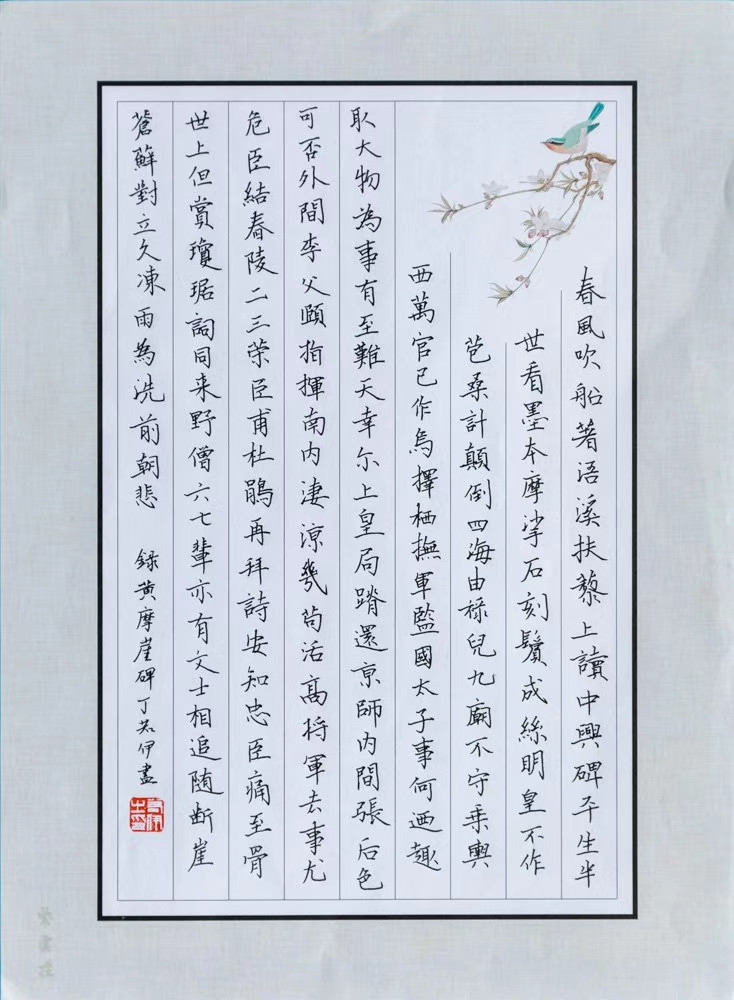 春風吹船著浯溪扶藜上讀中興碑平生半
世看墨本摩挲石刻鬢成絲明皇不作
苞桑計顛倒四海由祿兒九廟不守乘輿
西萬官已作烏擇栖撫軍監國太子事何迺趣
取大物為事有至難天幸尔上皇局蹐還京師内間張后色
可否外間李父頤指揮南内淒涼幾苟活高将軍去事尤
危臣結舂陵二三策臣甫杜鵑再拜詩安知忠臣痛至骨
世上但賞瓊琚詞同来野僧六七輩亦有文士相追随断崖
蒼蘚對立久凍雨為洗前朝悲 録黄摩崖碑丁若伊書